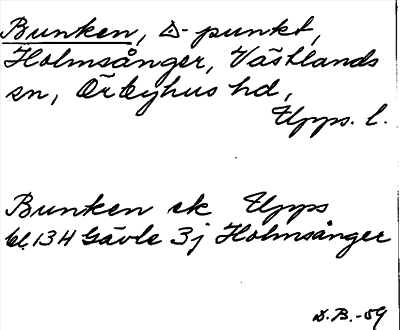 Bunken, △-punkt,
Holmsånger, Västlands
sn, Örbyhus hd,
Upps. l.
Bunken ek Upps
bl. 13H Gävle 3j Holmsånger
D.B.-59